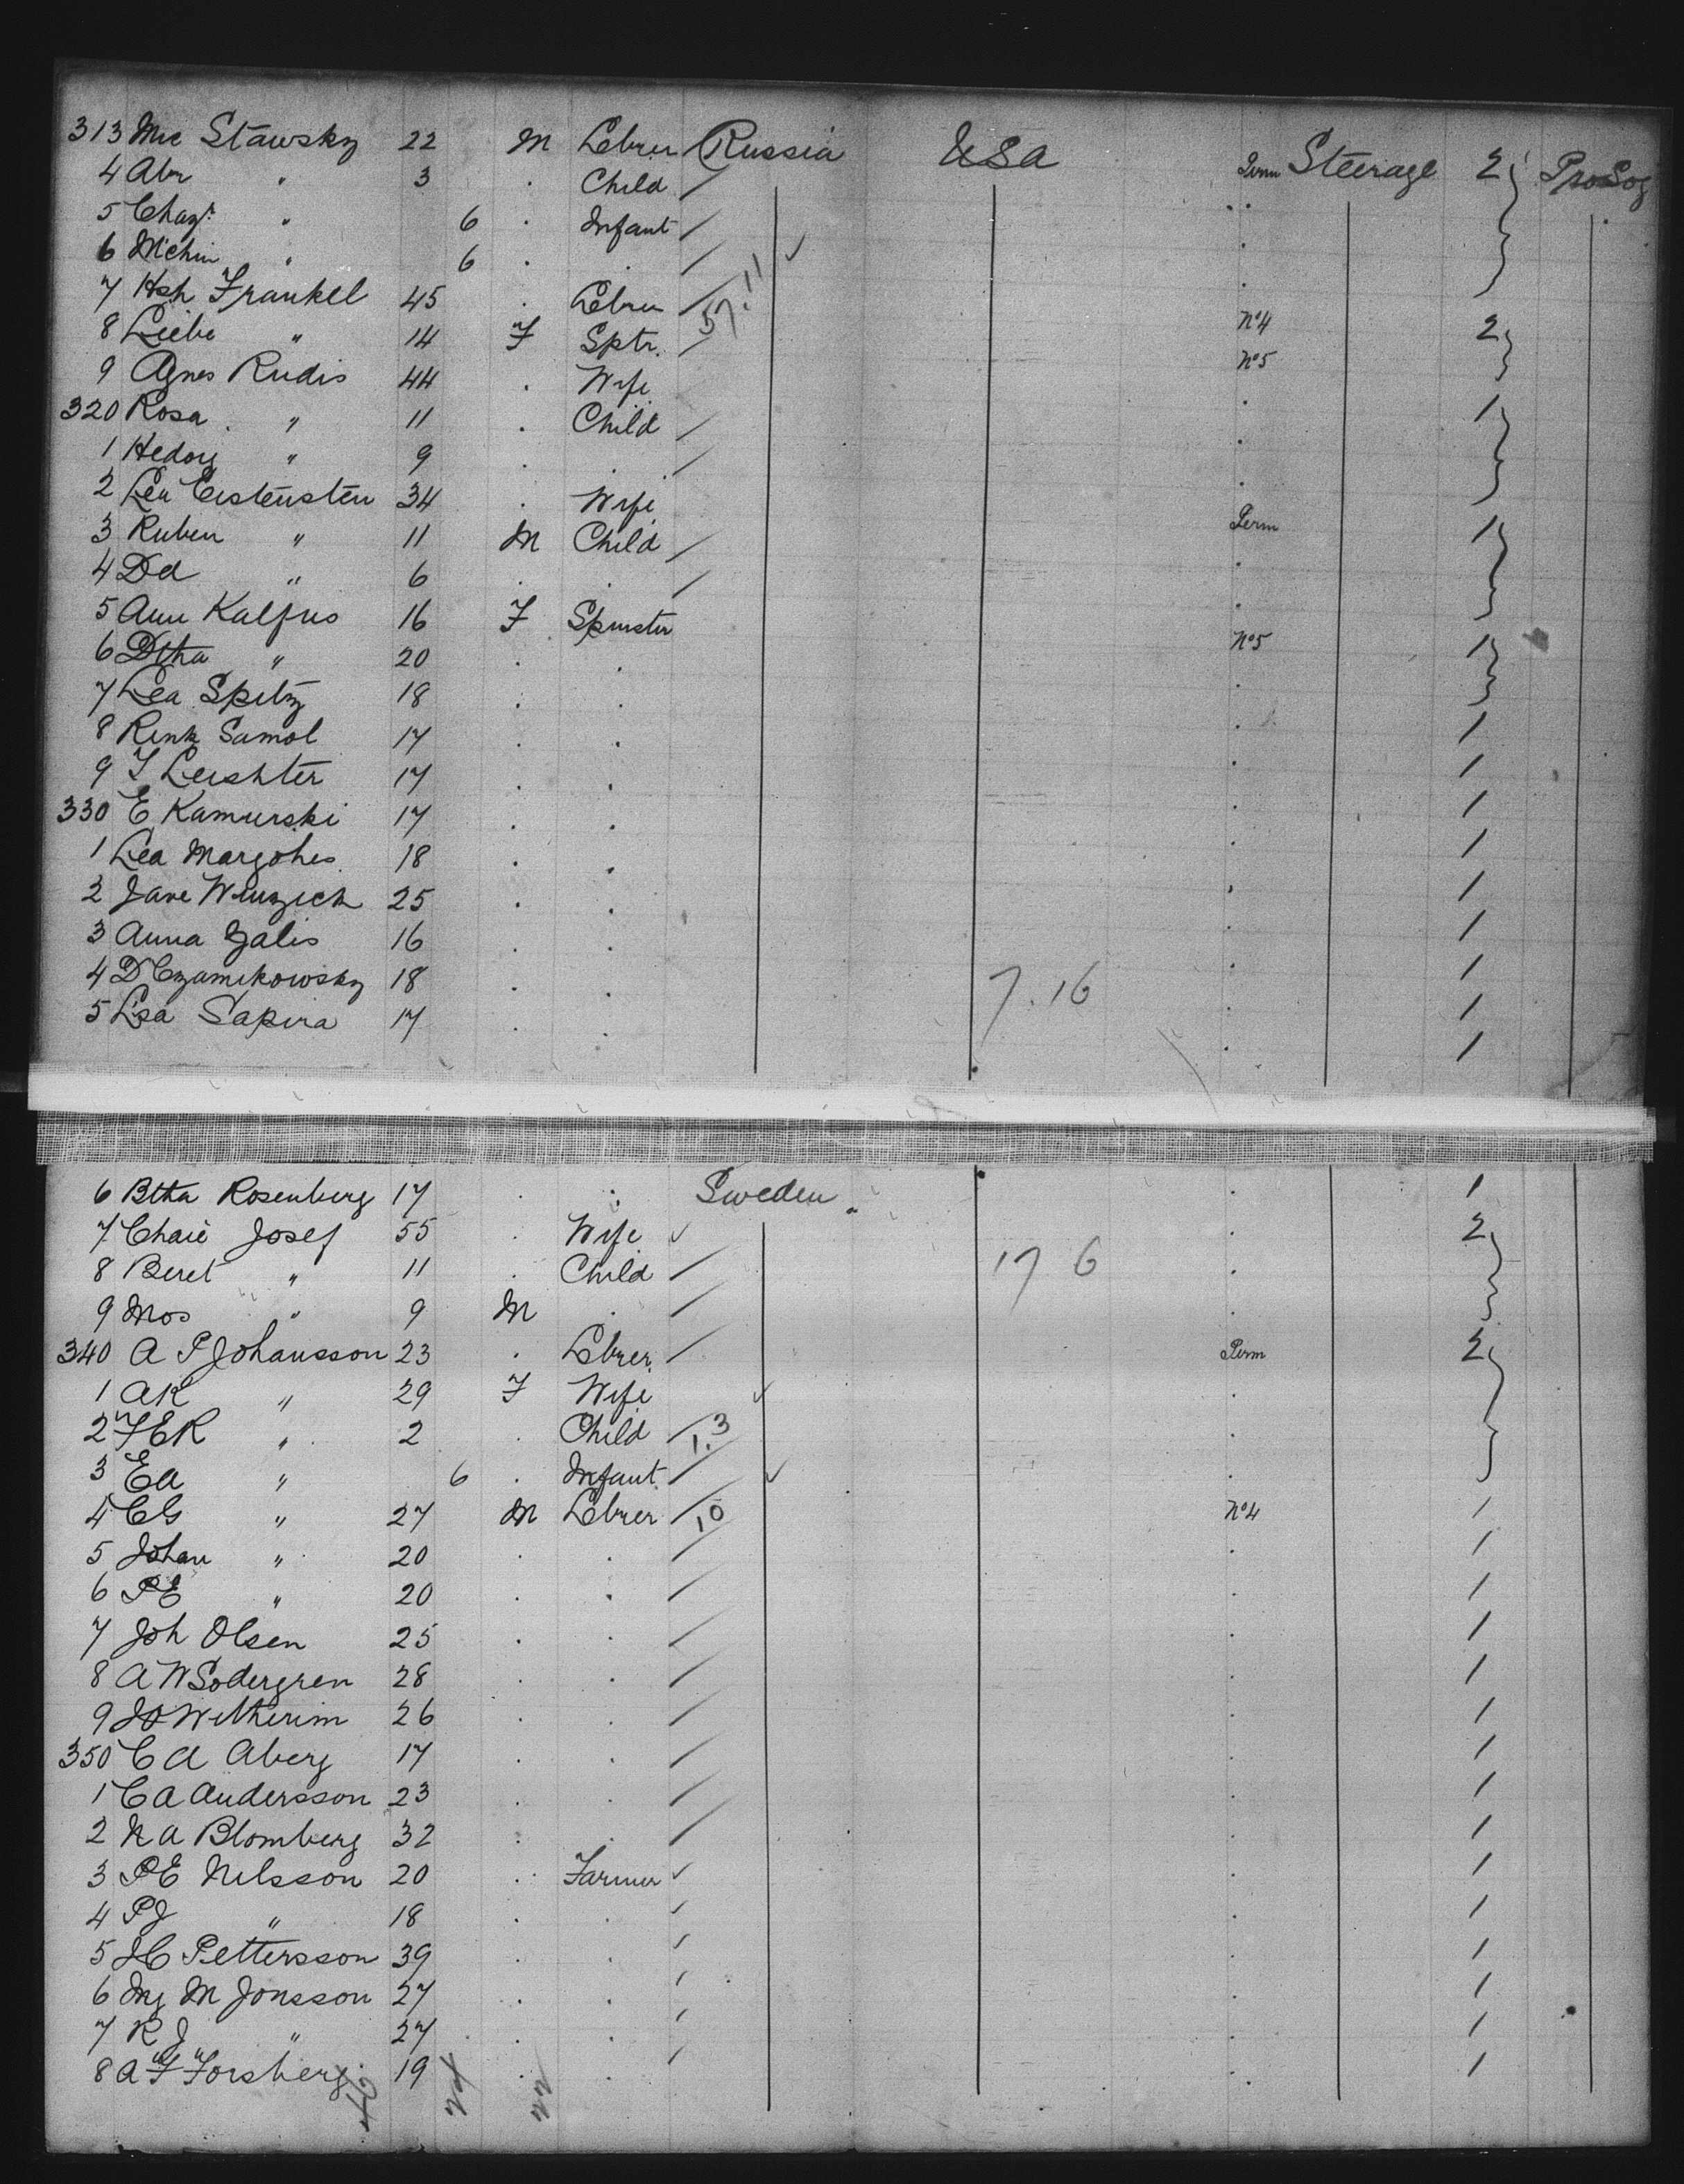 313 Mre Stawsky 22 M Lebrer Russia USA Perm Steerage 2 ProSog
4 Abr " 3 . Child
5 Chaz " 6 . Infant
6 Mchin " 6 . .
7 Hsh Frankel 45 . Lebrer 57.11
8 Liebe " 14 F Sptr. No4 2
9 Agnes Rudis 44 . Wife No5
320 Rosa " 11 . Child 1
1 Hedorg " 9 . .
2 Lea Eistenstein 34 . Wife Perm
3 Ruben " 11 M Child 1
4 Dd " 6 . .
5 Ann Kalfus 16 F Spinster No5
6 Dtha " 20 . . 1
7 Lea Spitz 18 . .
8 Rink Samol 17 . . 1
9 I Leishter 17 . . 1
330 E Kamurski 17 . . 1
1 Lea Margohes 18 . . 1
2 Jane Winzich 25 . . 1
3 Anna Galis 16 . . 1
4 D Czamikowsky 18 . . 7.16 1
5 Lsa Sapira 17 . . 1
6 Btha Rosenberg 17 . . Sweden 1
7 Chaie Josef 55 . Wife 2
8 Beret " 11 . Child 17 6
9 Mos " 9 M .
340 A P Johansson 23 . Lebrer Perm 2
1 AK " 29 F Wife
2 FER " 2 . Child 1.3
3 Ea " 6 . Infant
4 CG " 27 M Lebrer 10 No4 1
5 Johan " 20 . . 1
6 PE " 20 . . 1
7 Joh Olsen 25 . . 1
8 A W Sodergren 28 . . 1
9 JO Witherim 26 . . 1
350 C A Aberg 17 . . 1
1 C A Andersson 23 . . 1
2 N A Blomberg 32 . . 1
3 PE Nilsson 20 . Farmer 1
4 PJ " 18 . . 1
5 JC Pettersson 39 . . 1
6 Mg M Jonsson 27 . . 1
7 K J " 27 . . 1
8 A F Forsberg 19 . . 1
46 24 22